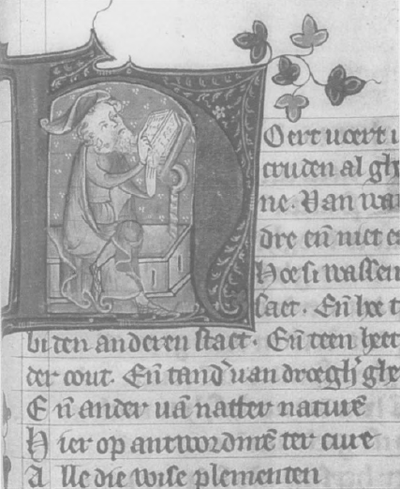 Oert voert i
cruden al ghe
ne. Van wa
dre eñ niet e
Hoe si wassen
saet. Eñ hoe t
bi den anderen staet. Eñ teen heet
der cout. Eñ tand' van droegh' ghe
Eñ ander vā natter naturē
Hier op antwordmē ter cure
Alle die wise plementen